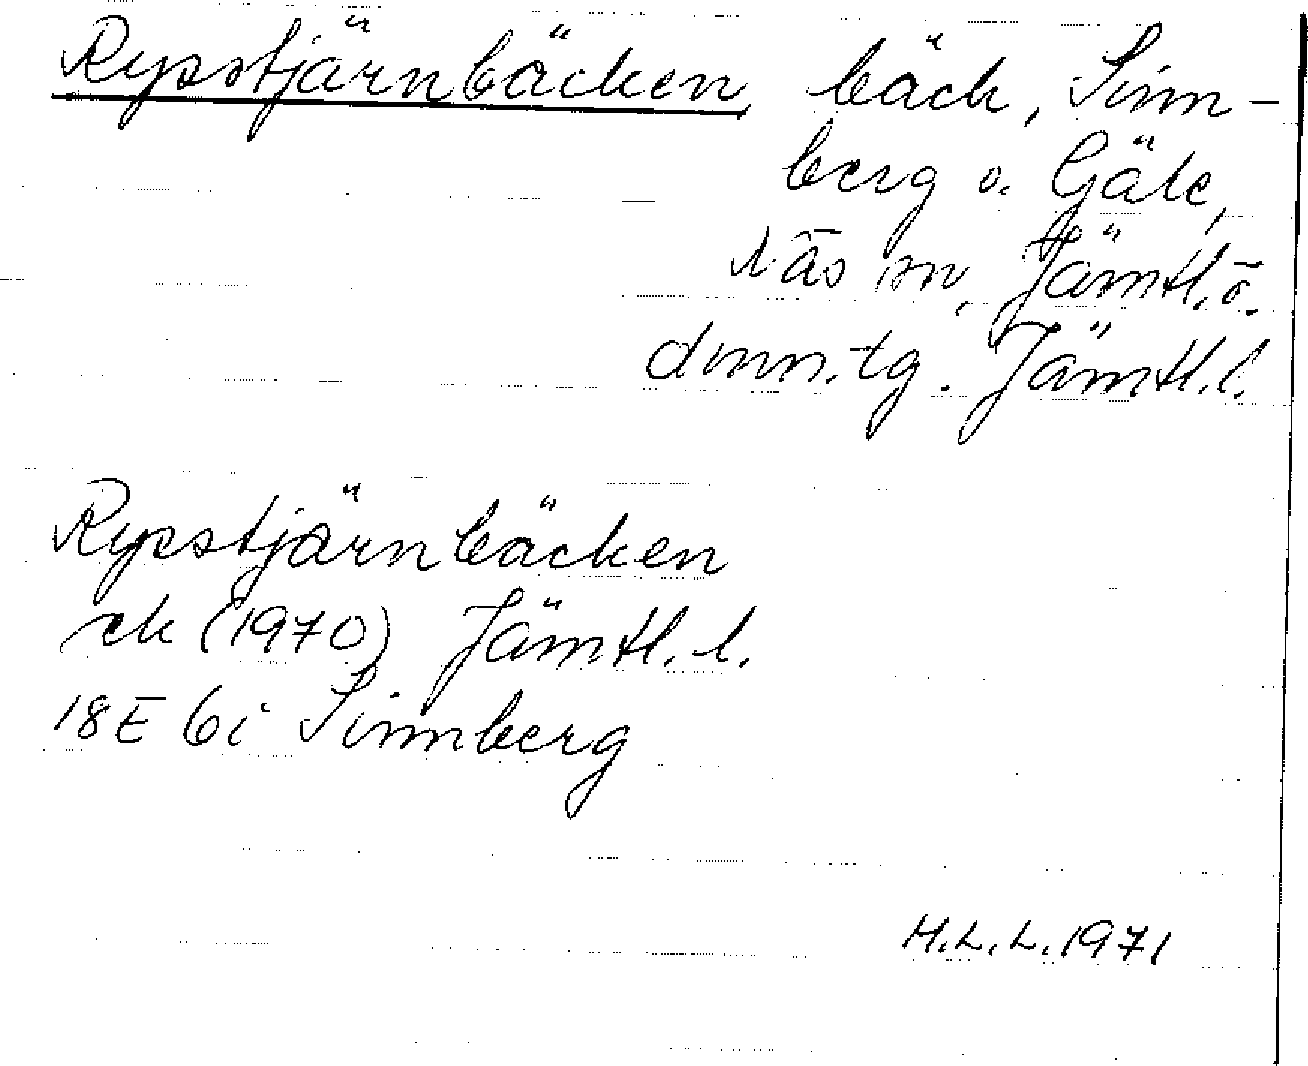 Rypstjärnbäcken bäck, Sinn-
berg o. Gäle,
Näs sn, Jämtl. ö.
doms.tg. Jämtl. l.
Rypstjärnbäcken
ek (1970) Jämtl. l.
18E 6i Sinnberg
H.L.L. 1971